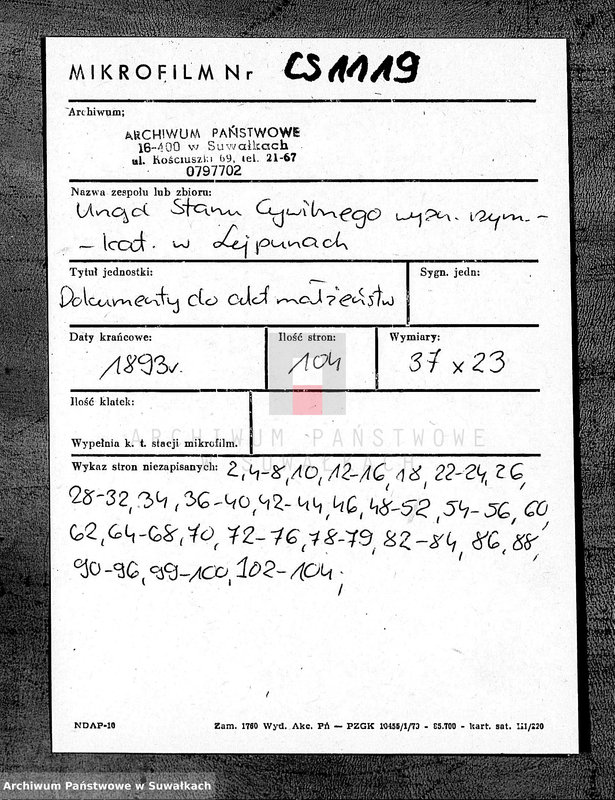 MIKROFILM Nr CS1119
Archiwum;
ARCHIWUM PAŃSTWOWE
16-400 w Suwałkach
ul. Kościuszki 69, tel. 21-67
0797702
Nazwa zespołu lub zbioru:
Urząd Stanu Cywilnego wyzn. rzym.-
- kat. w Lejpunach
Tytuł jednostki: Sygn. jedn:
Dokumenty do akt małżeństw
Daty krańcowe: Ilość stron: Wymiary:
1893r. 104 37 x 23
Ilość klatek:
ARCHIWUM PAŃSTWOWE
W SUWAŁKACH
Wypełnia k. t. stacji mikrofilm.
Wykaz stron niezapisanych: 2,4-8,10,12-16,18,22-24,26,
28-32,34,36-40,42-44,46,48-52,54-56,60,
62,64-68,70,72-76,78-79,82-84,86,88,
90-96,99-100,102-104;
NDAP-10 Zam. 1760 Wyd. Akc. Pń — PZGK 10455/I/73 - 85.700 - kart. sat. III/220
Archiwum Państwowe w Suwałkach